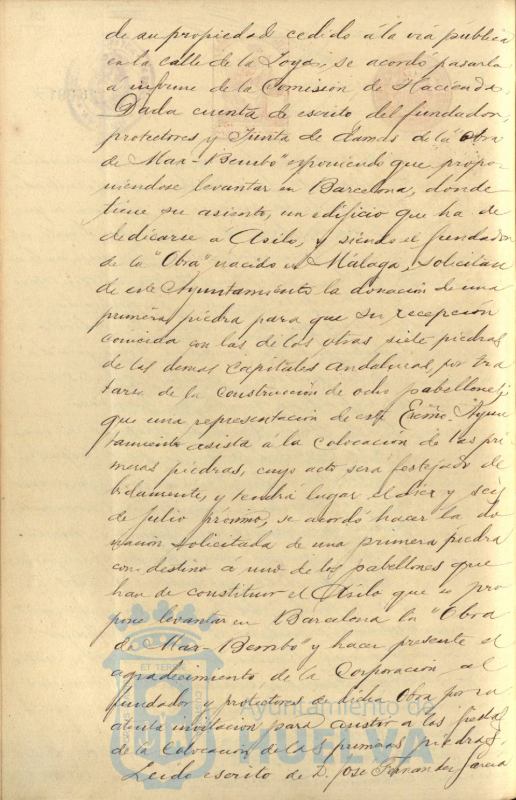 de su propiedad cedido á la via pública
en la calle de la Joya, se acordó pasarla
a informe de la Comisión de Hacienda.
Dada cuenta de escrito del fundador,
protectores y Junta de damas de la "Obra
de Mar-Bembo" exponiendo que propo-
niéndose levantar en Barcelona, donde
tiene su asiento, un edificio que ha de
dedicarse á Asilo, y siendo el fundador
de la "Obra" nacido en Málaga, solicitan
de este Ayuntamiento la donación de una
primera piedra para que su recepción
coincida con las de las otras siete piedras
de las demas capitales andaluzas, por tra
tarse de la construcción de ocho pabellones, y
que una representación de este Excmo. Ayun
tamiento asista á la colocación de las pri
meras piedras, cuyo acto será festejado de
bidamente, y tendrá lugar el diez y seis
de julio próximo, se acordó hacer la do
nación solicitada de una primera piedra
con destino a uno de los pabellones que
han de constituir el Asilo que se pro
pone levantar en Barcelona la "Obra
de Mar-Bembo" y hacer presente el
agradecimiento de la Corporación al
fundador y protectores de dicha Obra por su
atenta invitación para asistir a las fiestas
de la colocación de las primeras piedras.
Leido escrito de D. José Fernandez García
Ayuntamiento de
HUELVA